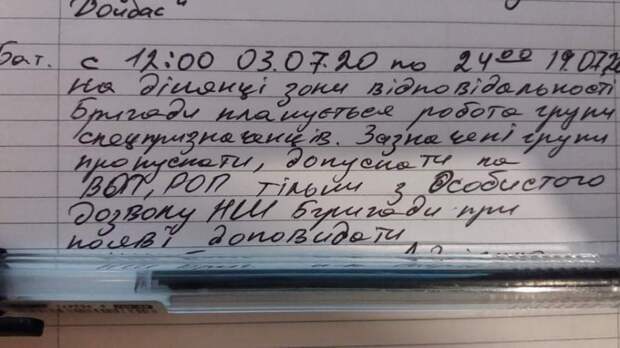 Донбас"
Бат. с 12:00 03.07.20 по 24⁰⁰ 19.07.20
на ділянці зони відповідальності
бригади планується робота групи
спецпризначенців. Зазначені групи
пропускати, допускати на
ВОП, РОП тільки з особистого
дозволу НШ бригади при
появі доповидати